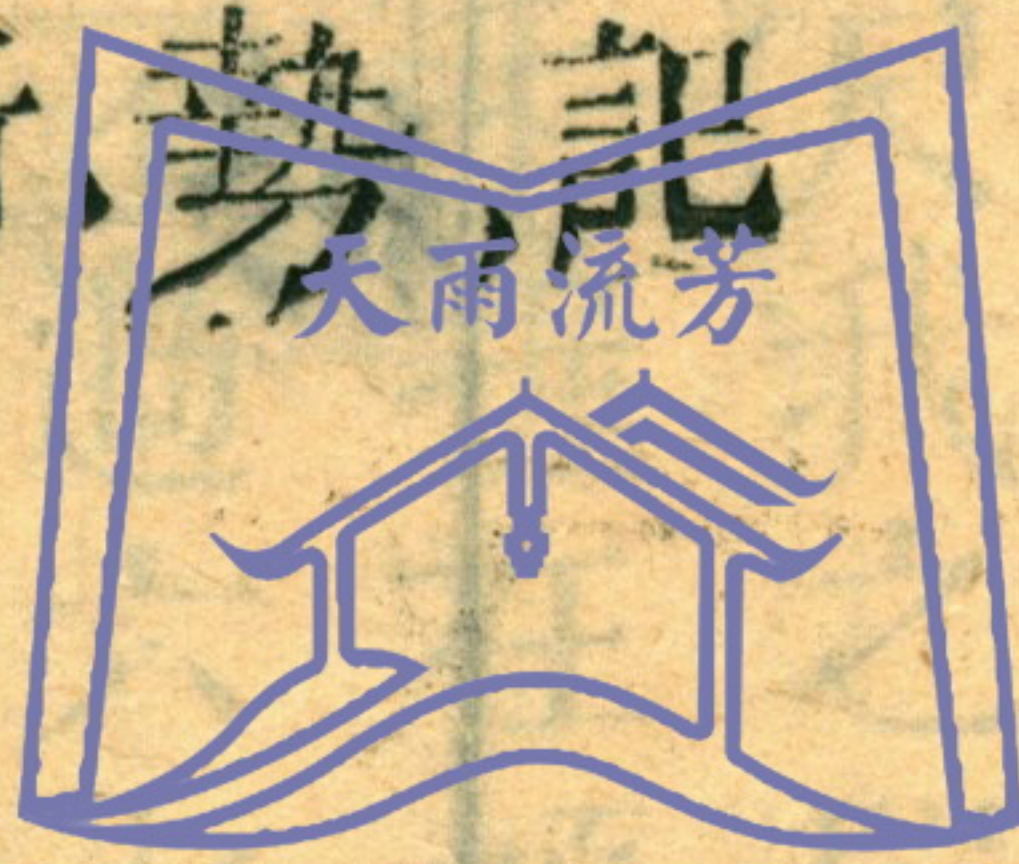 勢記
天雨流芳